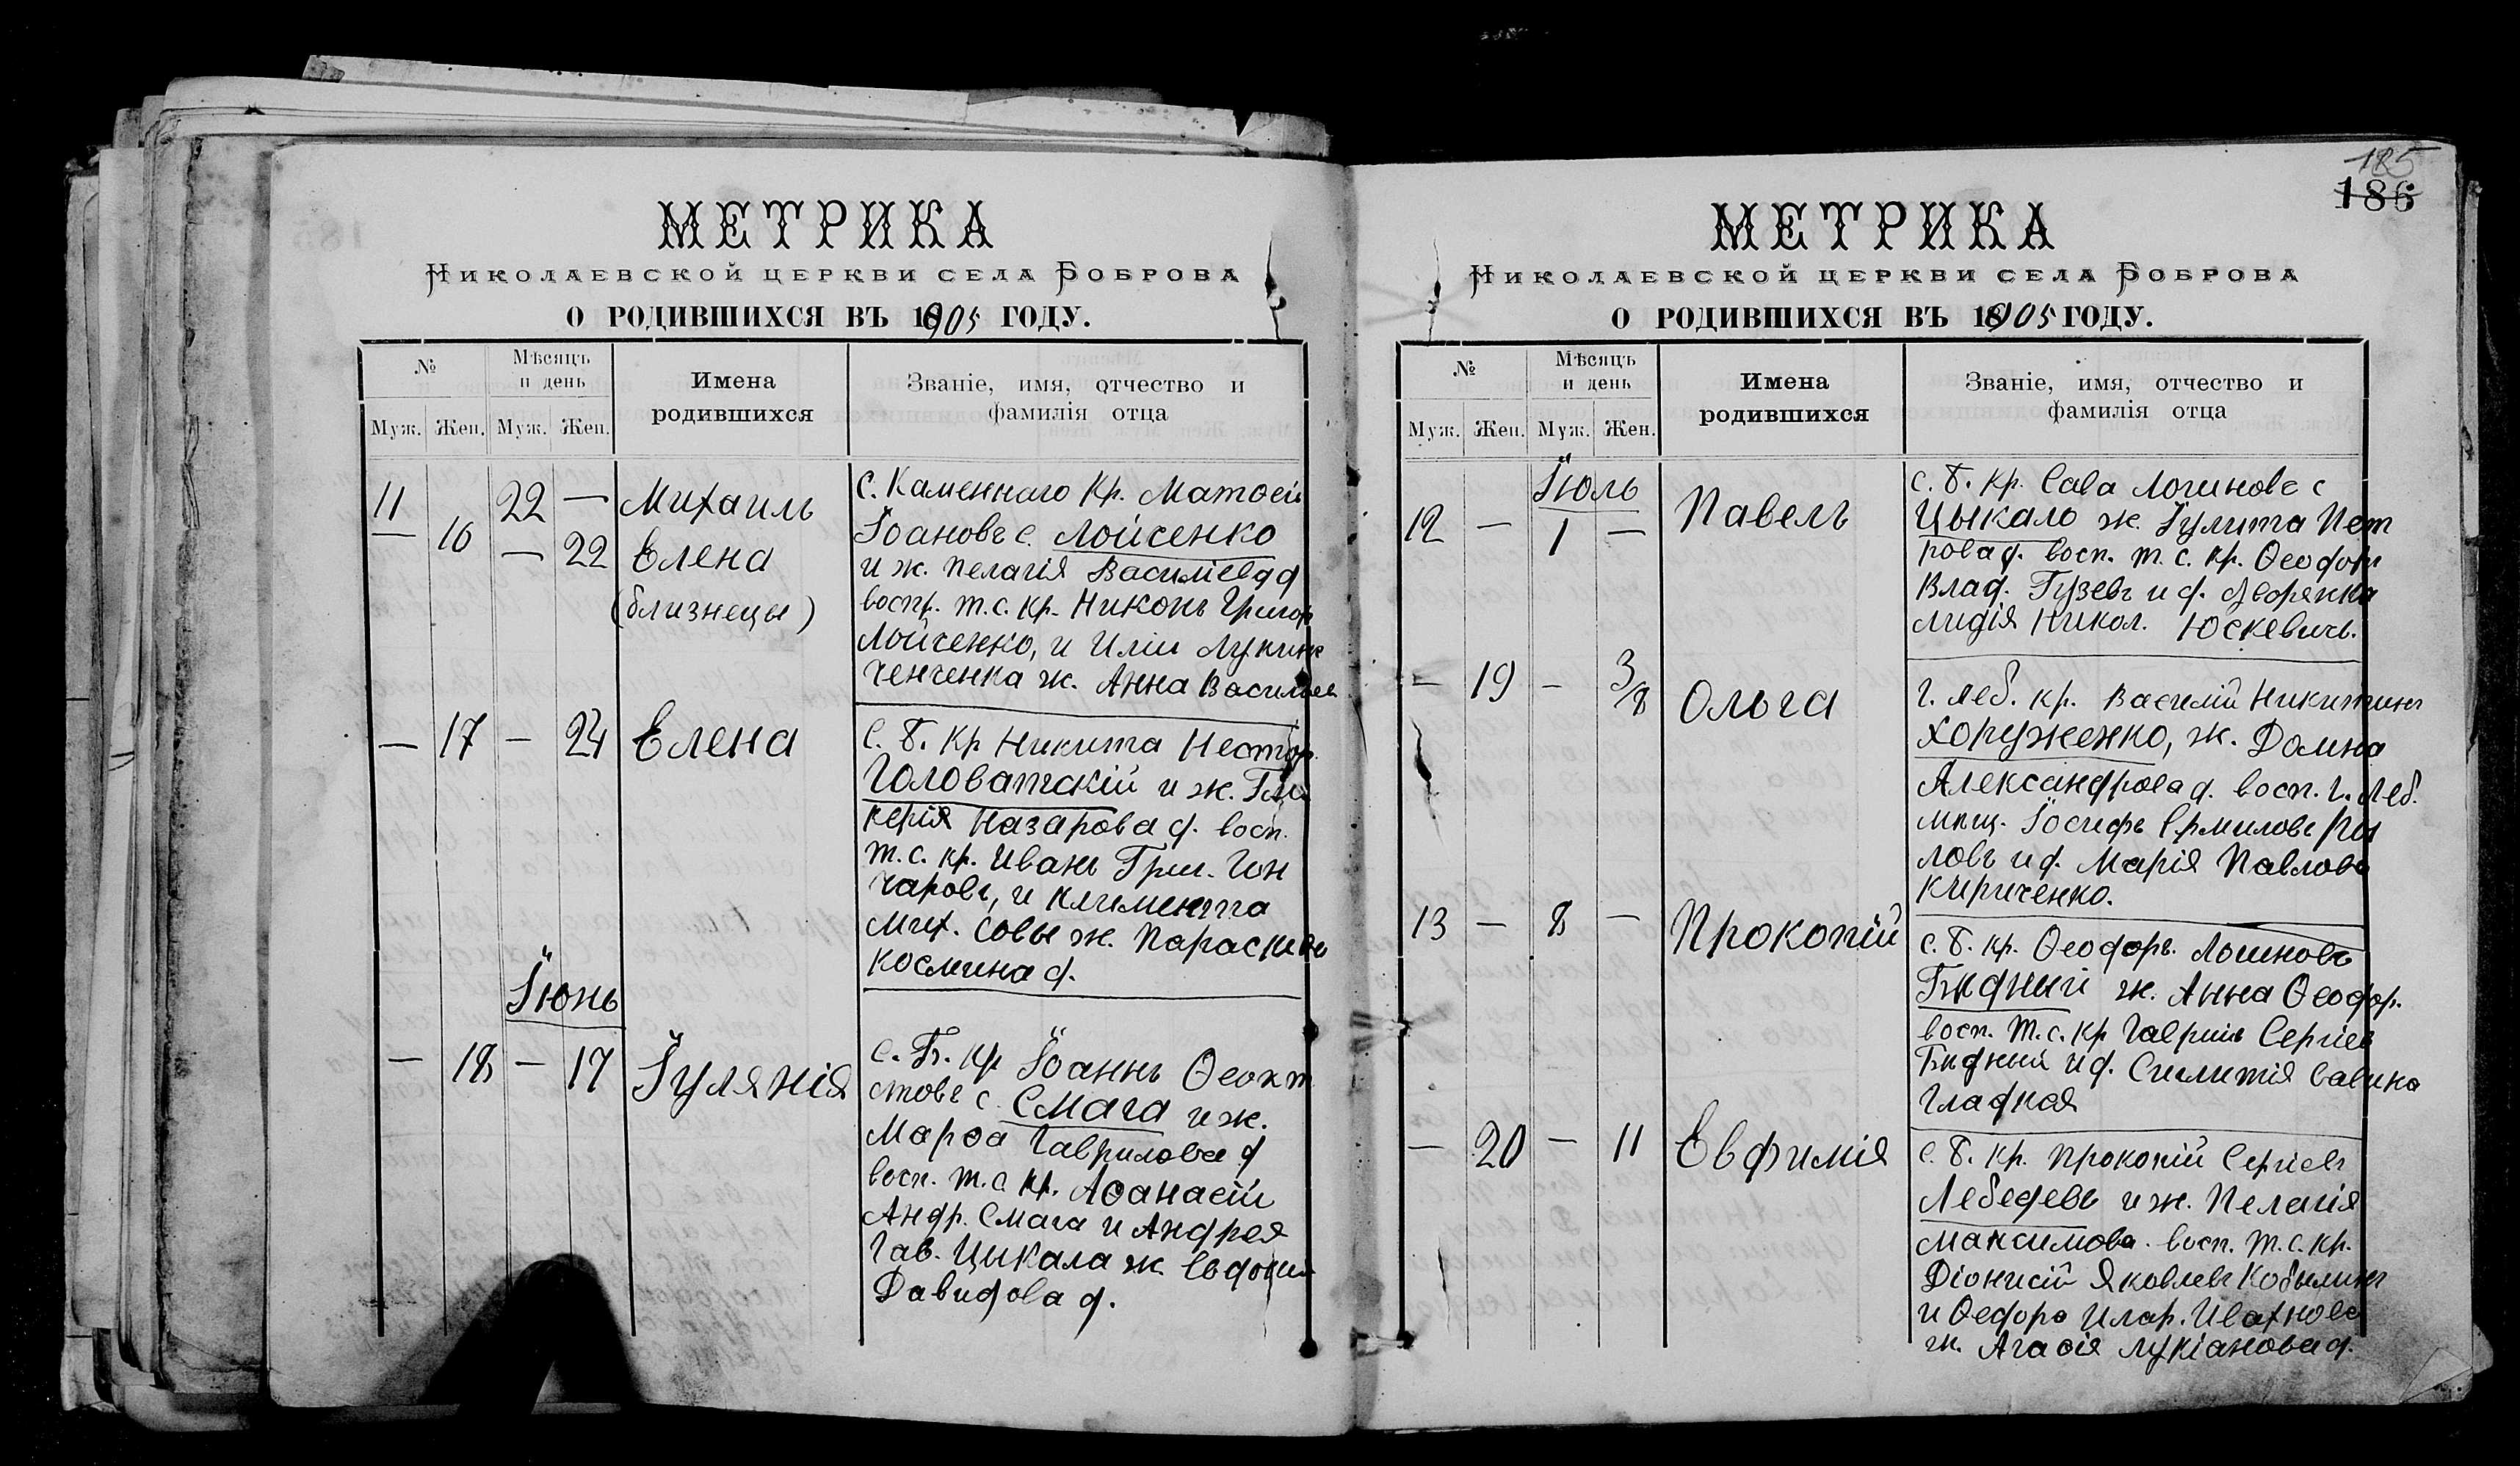 МЕТРИКА
Николаевской церкви села Боброва
О РОДИВШИХСЯ ВЪ 1905 ГОДУ.
№ Мѣсяцъ и день Имена родившихся Званіе, имя, отчество и фамилія отца
Муж. Жен. Муж. Жен.
11 22 — Михаилъ
— 16 — 22 Елена
(близнецы)
с. Каменнаго Кр. Матѳей
Іоановъ с. Лойченко
и ж. Пелагія Василіева д
воспр. т. с. кр. Никонъ Григор
Лойченко, и Иліи Лукин
ченченка ж. Анна Васильев
— 17 — 24 Елена
С. Б. Кр Никита Нестор.
Головатскій и ж. Гли
керія Назарова д. восп.
т. с. кр. Иванъ Григ. Гон
чаровъ, и Климента
Мих. Совы ж. Параскева
Космина д.
Іюнь
— 18 — 17 Іулянія
с. Б. кр Іоаннъ Ѳеокти
стовъ с. Смага и ж.
Марѳа Гаврилова д
восп. т. с. кр. Аѳанасій
Андр. Смага и Андрея
Гав. Цыкала ж. Евдокии
Давидова д.
185
186
МЕТРИКА
Николаевской церкви села Боброва
О РОДИВШИХСЯ ВЪ 1905 ГОДУ.
№ Мѣсяцъ и день Имена родившихся Званіе, имя, отчество и фамилія отца
Муж. Жен. Муж. Жен.
Іюль
12 — 1 — Павелъ
с. Б. кр. Сава Логиновъ с
Цыкало ж. Іулита Пет
рова д. восп. т. с. кр. Ѳеодоръ
Влад. Гузевъ и д. дворянка
Лидія Никол. Юскевичъ.
— 19 — 3/8 Ольга
г. Леб. кр. Василій Никитинъ
Хоруженко, ж. Домна
Александрова д. восп. г. Леб.
мѣщ. Іосифъ Ермиловъ
ловъ и д. Марія Павлова
Кириченко.
13 — 8 — Прокопій
с. Б. кр. Ѳеодоръ Логиновъ
Бѣдный ж. Анна Ѳеодор.
восп. т. с. кр Гавріилъ Сергіев
Бѣдный и д. Савина
Гладкая
— 20 — 11 Евфимія
с. Б. кр. Прокопій Сергіевъ
Лебедевъ и ж. Пелагія
Максимова восп. т. с. кр.
Діонисій Яковлевъ Кобылинъ
и Ѳедора Илар. Ивахнова
ж. Агаѳія Лукіанова д.